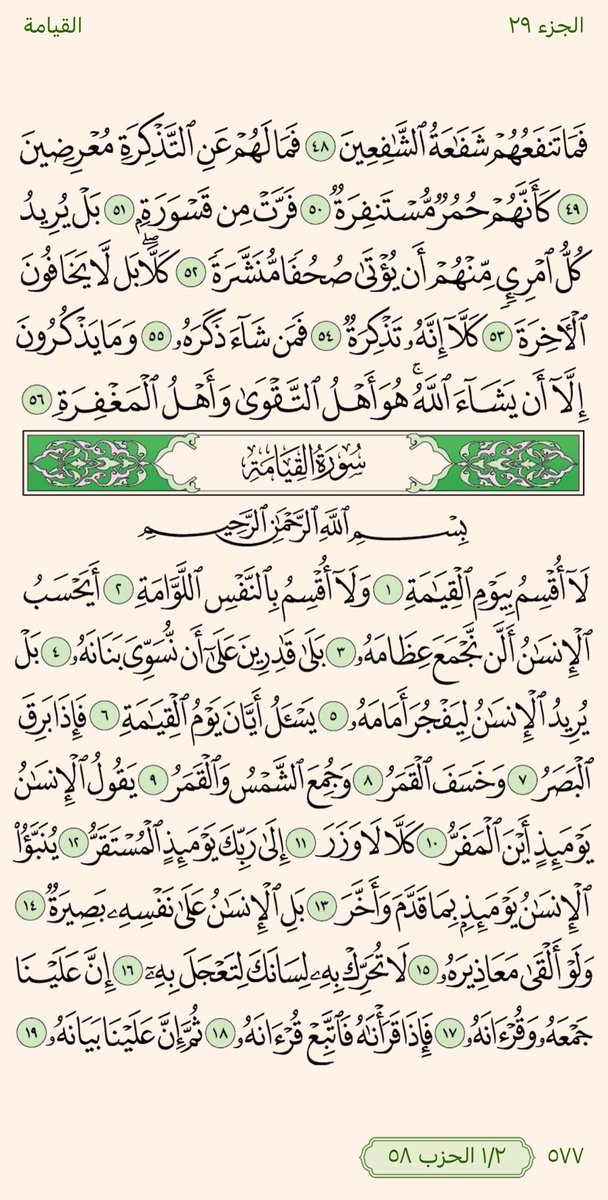 الجزء ٢٩
القيامة
فَمَا تَنفَعُهُمْ شَفَٰعَةُ ٱلشَّٰفِعِينَ ٤٨ فَمَا لَهُمْ عَنِ ٱلتَّذْكِرَةِ مُعْرِضِينَ
٤٩ كَأَنَّهُمْ حُمُرٌ مُّسْتَنفِرَةٌ ٥٠ فَرَّتْ مِن قَسْوَرَةٍۭ ٥١ بَلْ يُرِيدُ
كُلُّ ٱمْرِئٍ مِّنْهُمْ أَن يُؤْتَىٰ صُحُفًا مُّنَشَّرَةً ٥٢ كَلَّاۖ بَل لَّا يَخَافُونَ
ٱلْأٓخِرَةَ ٥٣ كَلَّآ إِنَّهُۥ تَذْكِرَةٌ ٥٤ فَمَن شَآءَ ذَكَرَهُۥ ٥٥ وَمَا يَذْكُرُونَ
إِلَّآ أَن يَشَآءَ ٱللَّهُۚ هُوَ أَهْلُ ٱلتَّقْوَىٰ وَأَهْلُ ٱلْمَغْفِرَةِ ٥٦
سُورَةُ القِيَامَةِ
بِسْمِ ٱللَّهِ ٱلرَّحْمَٰنِ ٱلرَّحِيمِ
لَآ أُقْسِمُ بِيَوْمِ ٱلْقِيَٰمَةِ ١ وَلَآ أُقْسِمُ بِٱلنَّفْسِ ٱللَّوَّامَةِ ٢ أَيَحْسَبُ
ٱلْإِنسَٰنُ أَلَّن نَّجْمَعَ عِظَامَهُۥ ٣ بَلَىٰ قَٰدِرِينَ عَلَىٰٓ أَن نُّسَوِّىَ بَنَانَهُۥ ٤ بَلْ
يُرِيدُ ٱلْإِنسَٰنُ لِيَفْجُرَ أَمَامَهُۥ ٥ يَسْـَٔلُ أَيَّانَ يَوْمُ ٱلْقِيَٰمَةِ ٦ فَإِذَا بَرِقَ
ٱلْبَصَرُ ٧ وَخَسَفَ ٱلْقَمَرُ ٨ وَجُمِعَ ٱلشَّمْسُ وَٱلْقَمَرُ ٩ يَقُولُ ٱلْإِنسَٰنُ
يَوْمَئِذٍ أَيْنَ ٱلْمَفَرُّ ١٠ كَلَّا لَا وَزَرَ ١١ إِلَىٰ رَبِّكَ يَوْمَئِذٍ ٱلْمُسْتَقَرُّ ١٢ يُنَبَّؤُا۟
ٱلْإِنسَٰنُ يَوْمَئِذٍۭ بِمَا قَدَّمَ وَأَخَّرَ ١٣ بَلِ ٱلْإِنسَٰنُ عَلَىٰ نَفْسِهِۦ بَصِيرَةٌ ١٤
وَلَوْ أَلْقَىٰ مَعَاذِيرَهُۥ ١٥ لَا تُحَرِّكْ بِهِۦ لِسَانَكَ لِتَعْجَلَ بِهِۦٓ ١٦ إِنَّ عَلَيْنَا
جَمْعَهُۥ وَقُرْءَانَهُۥ ١٧ فَإِذَا قَرَأْنَٰهُ فَٱتَّبِعْ قُرْءَانَهُۥ ١٨ ثُمَّ إِنَّ عَلَيْنَا بَيَانَهُۥ ١٩
٥٧٧
١/٢ الحزب ٥٨